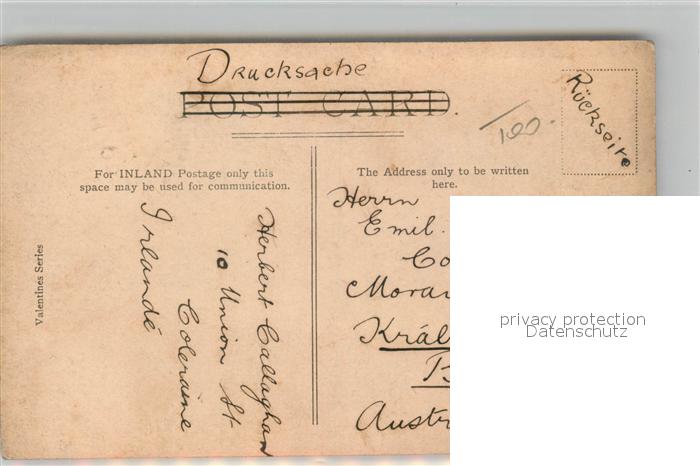 Drucksache
POST CARD.
Rückseite
100.
For INLAND Postage only this
space may be used for communication.
The Address only to be written
here.
Herbert Callaghan
10 Union St
Coleraine
Irlandé
Valentines Series
Herrn
Emil.
Co
Morav
Král
B
Austr
privacy protection
Datenschutz